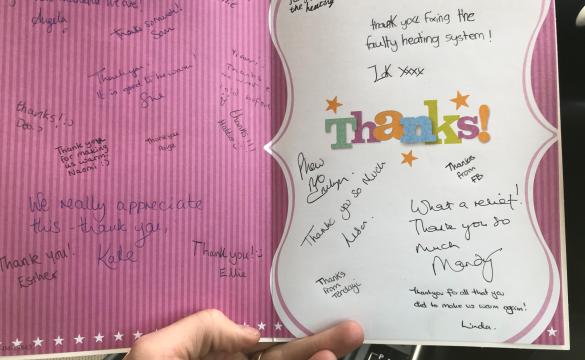 Angela
Thanks so much!
Sam
Thank you.
It is good to be warm
Sue
thanks! :)
Deb :)
Thank you
for making
us warm!
Naomi :)
Thank you
Paige
thanks!!!
We really appreciate
this - thank you,
Kate
Thank you!
Esther
Thank you! :)
Ellie
the heating
thank you fixing the
faulty heating system!
xxxx
Thanks!
Phew
Thank you so much
Thanks
from
FB
What a relief!
Thank you so
much
Mandy
Thanks
from
Thankyou for all that you
did to make us warm again!
Linda.